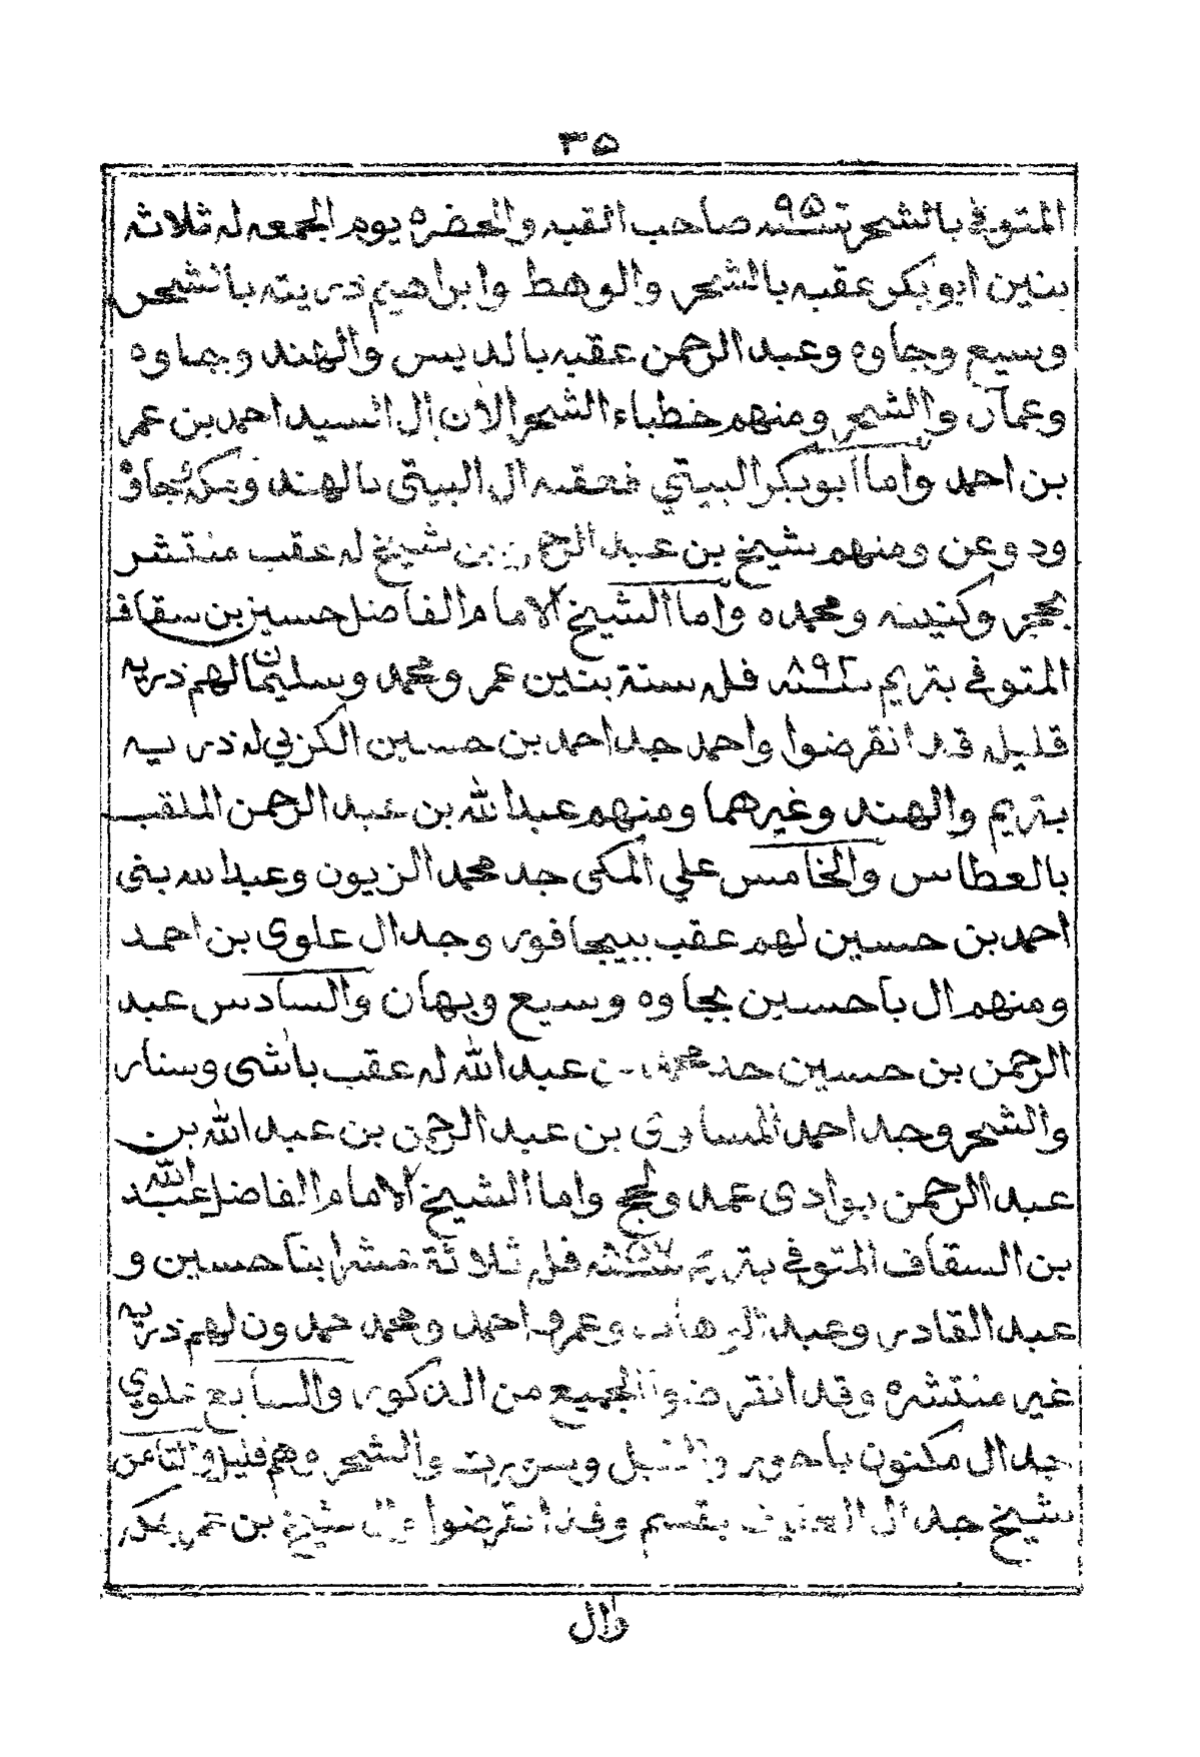 ٣٥
المتوفي بالشحر سنه ٩٥ صاحب القبه والحضره يوم الجمعه له ثلاثه
بنين ابو بكر عقبه بالشحر والوهط وابراهيم ذريته بالشحر
وسيع وجاوه وعبد الرحمن عقبه بالديس والهند وجاوه
وعمان والشحر ومنهم خطباء الشحر الأن ال السيد احمد بن عمر
بن احمد واما أبو بكر البيتي فعقبه ال البيتي بالهند ومكه وجاوه
ودوعن ومنهم شيخ بن عبد الرحمن بن شيخ له عقب منتشر
بحجر وكنينه ومحمده واما الشيخ الامام الفاضل حسين بن سقاف
المتوفي بتريم سنه ٨٩٢ فله ستة بنين عمر ومحمد وسليمان لهم ذريه
قليله قد انقرضوا واحمد جد احمد بن حسين الكزبي له ذريه
بتريم والهند وغيرهما ومنهم عبدالله بن عبد الرحمن الملقب
بالعطاس والخامس علي المكى جد محمد الزيون وعبدالله بنى
احمد بن حسين لهم عقب ببيجافور وجد ال علوى بن احمد
ومنهم ال باحسين بجاوه وسيع وبهان والسادس عبد
الرحمن بن حسين جد محمد بن عبدالله له عقب باشى وسنار
والشحر وجد احمد المساوى بن عبد الرحمن بن عبد الله بن
عبد الرحمن بوادى عمد ولحج واما الشيخ الامام الفاضل عبد الله
بن السقاف المتوفي بتريم سنه ٨٥٧ فله ثلاثة عشر ابنا حسين و
عبد القادر وعبد الوهاب وعمر واحمد ومحمد حمدون لهم ذريه
غير منتشره وقد انقرضوا الجميع من الذكور والسابع علوي
جد ال مكنون باحور والشبل وبسورت والشحر وهم قليل والثامن
شيخ جد ال بقسم وقد انقرضوا وال شيخ بن عمر بمكه
وال